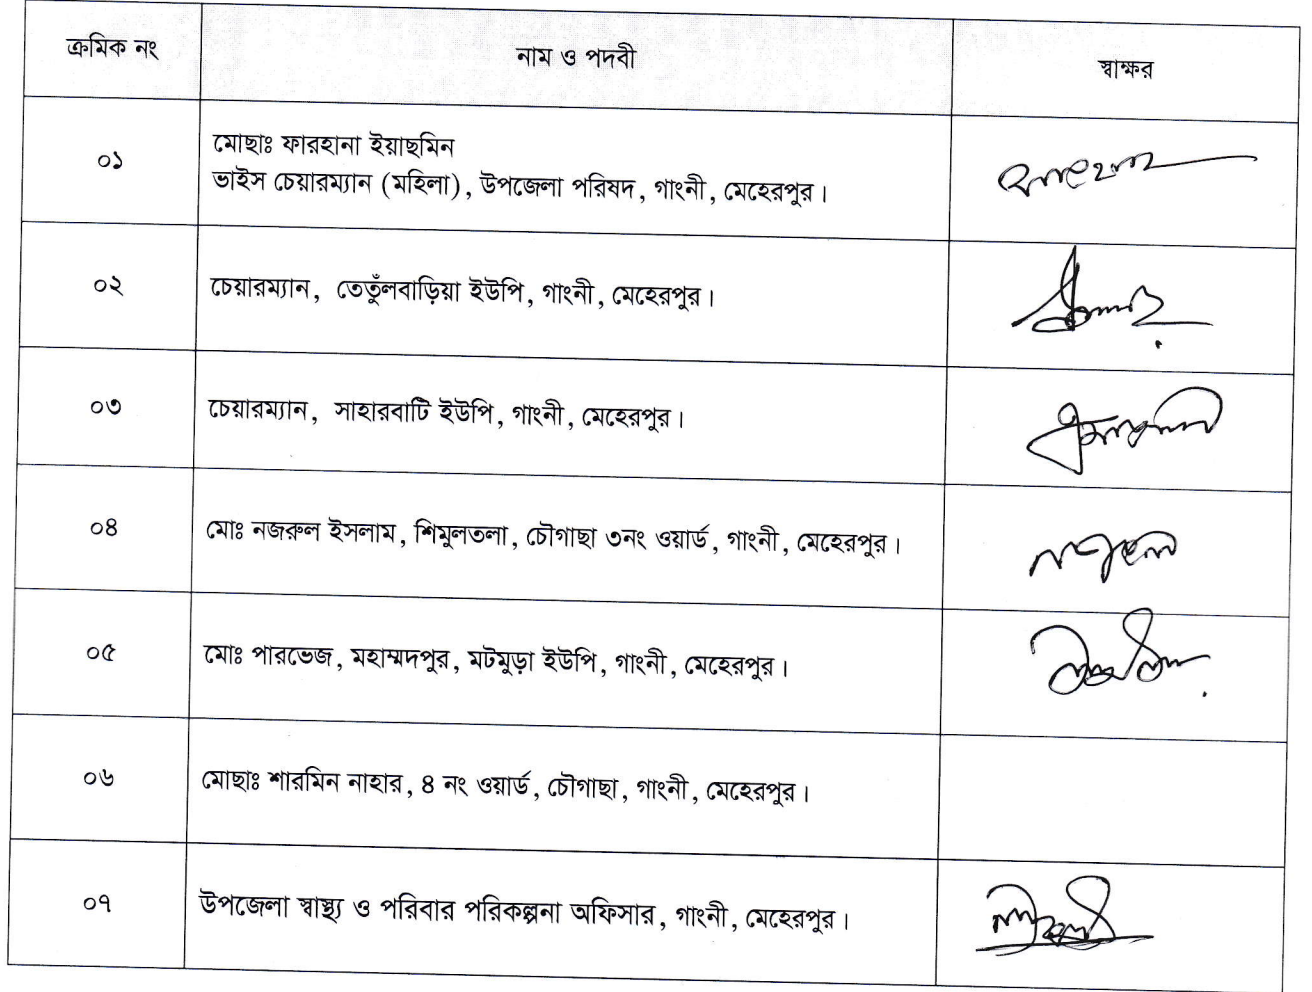 ক্রমিক নং
নাম ও পদবী
স্বাক্ষর
০১
মোছাঃ ফারহানা ইয়াছমিন
ভাইস চেয়ারম্যান (মহিলা), উপজেলা পরিষদ, গাংনী, মেহেরপুর।
০২
চেয়ারম্যান, তেতুঁলবাড়িয়া ইউপি, গাংনী, মেহেরপুর।
০৩
চেয়ারম্যান, সাহারবাটি ইউপি, গাংনী, মেহেরপুর।
০৪
মোঃ নজরুল ইসলাম, শিমুলতলা, চৌগাছা ৩নং ওয়ার্ড, গাংনী, মেহেরপুর।
০৫
মোঃ পারভেজ, মহাম্মদপুর, মটমুড়া ইউপি, গাংনী, মেহেরপুর।
০৬
মোছাঃ শারমিন নাহার, ৪ নং ওয়ার্ড, চৌগাছা, গাংনী, মেহেরপুর।
০৭
উপজেলা স্বাস্থ্য ও পরিবার পরিকল্পনা অফিসার, গাংনী, মেহেরপুর।